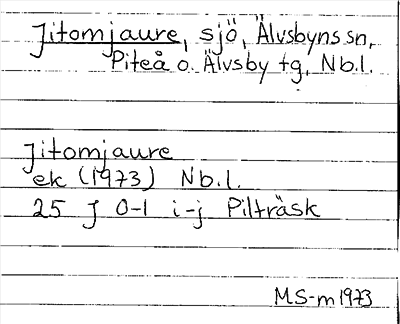 Jitomjaure, sjö, Älvsbyns sn,
Piteå o. Älvsby tg, Nb.l.
Jitomjaure
ek (1973) Nb.l.
25 J 0-1 i-j Pilträsk
MS-m 1973